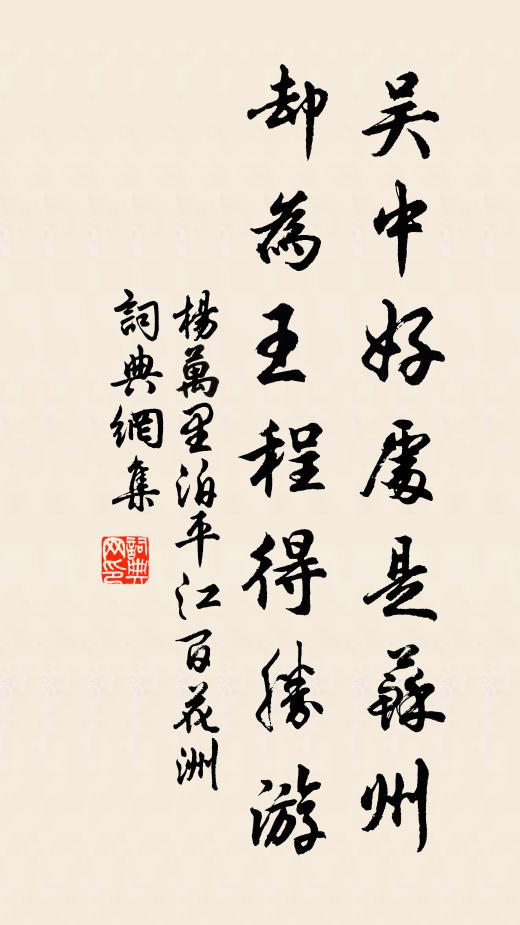 吴中好處是蘇州
却為王程得勝游
楊萬里泊平江百花洲
詞典網集
詞典网印